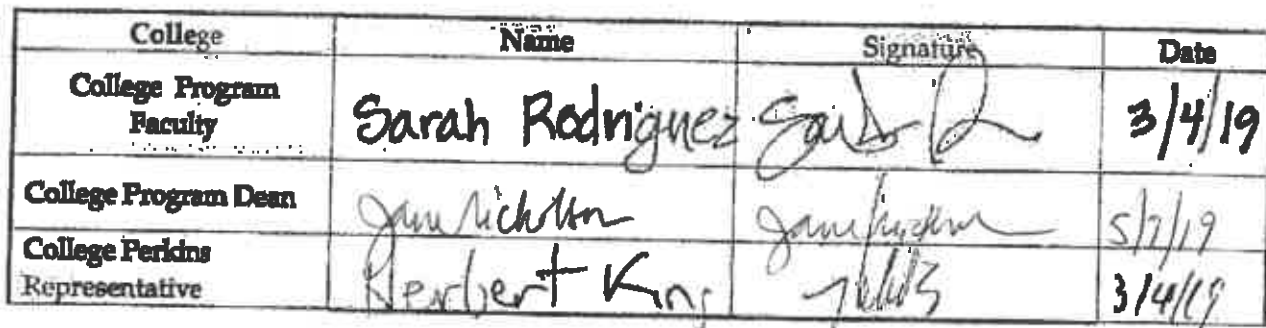 College Name Signature Date
College Program
Faculty
Sarah Rodriguez 3/4/19
College Program Dean Jane Nicholson 5/7/19
College Perkins
Representative
Herbert King 3/4/19